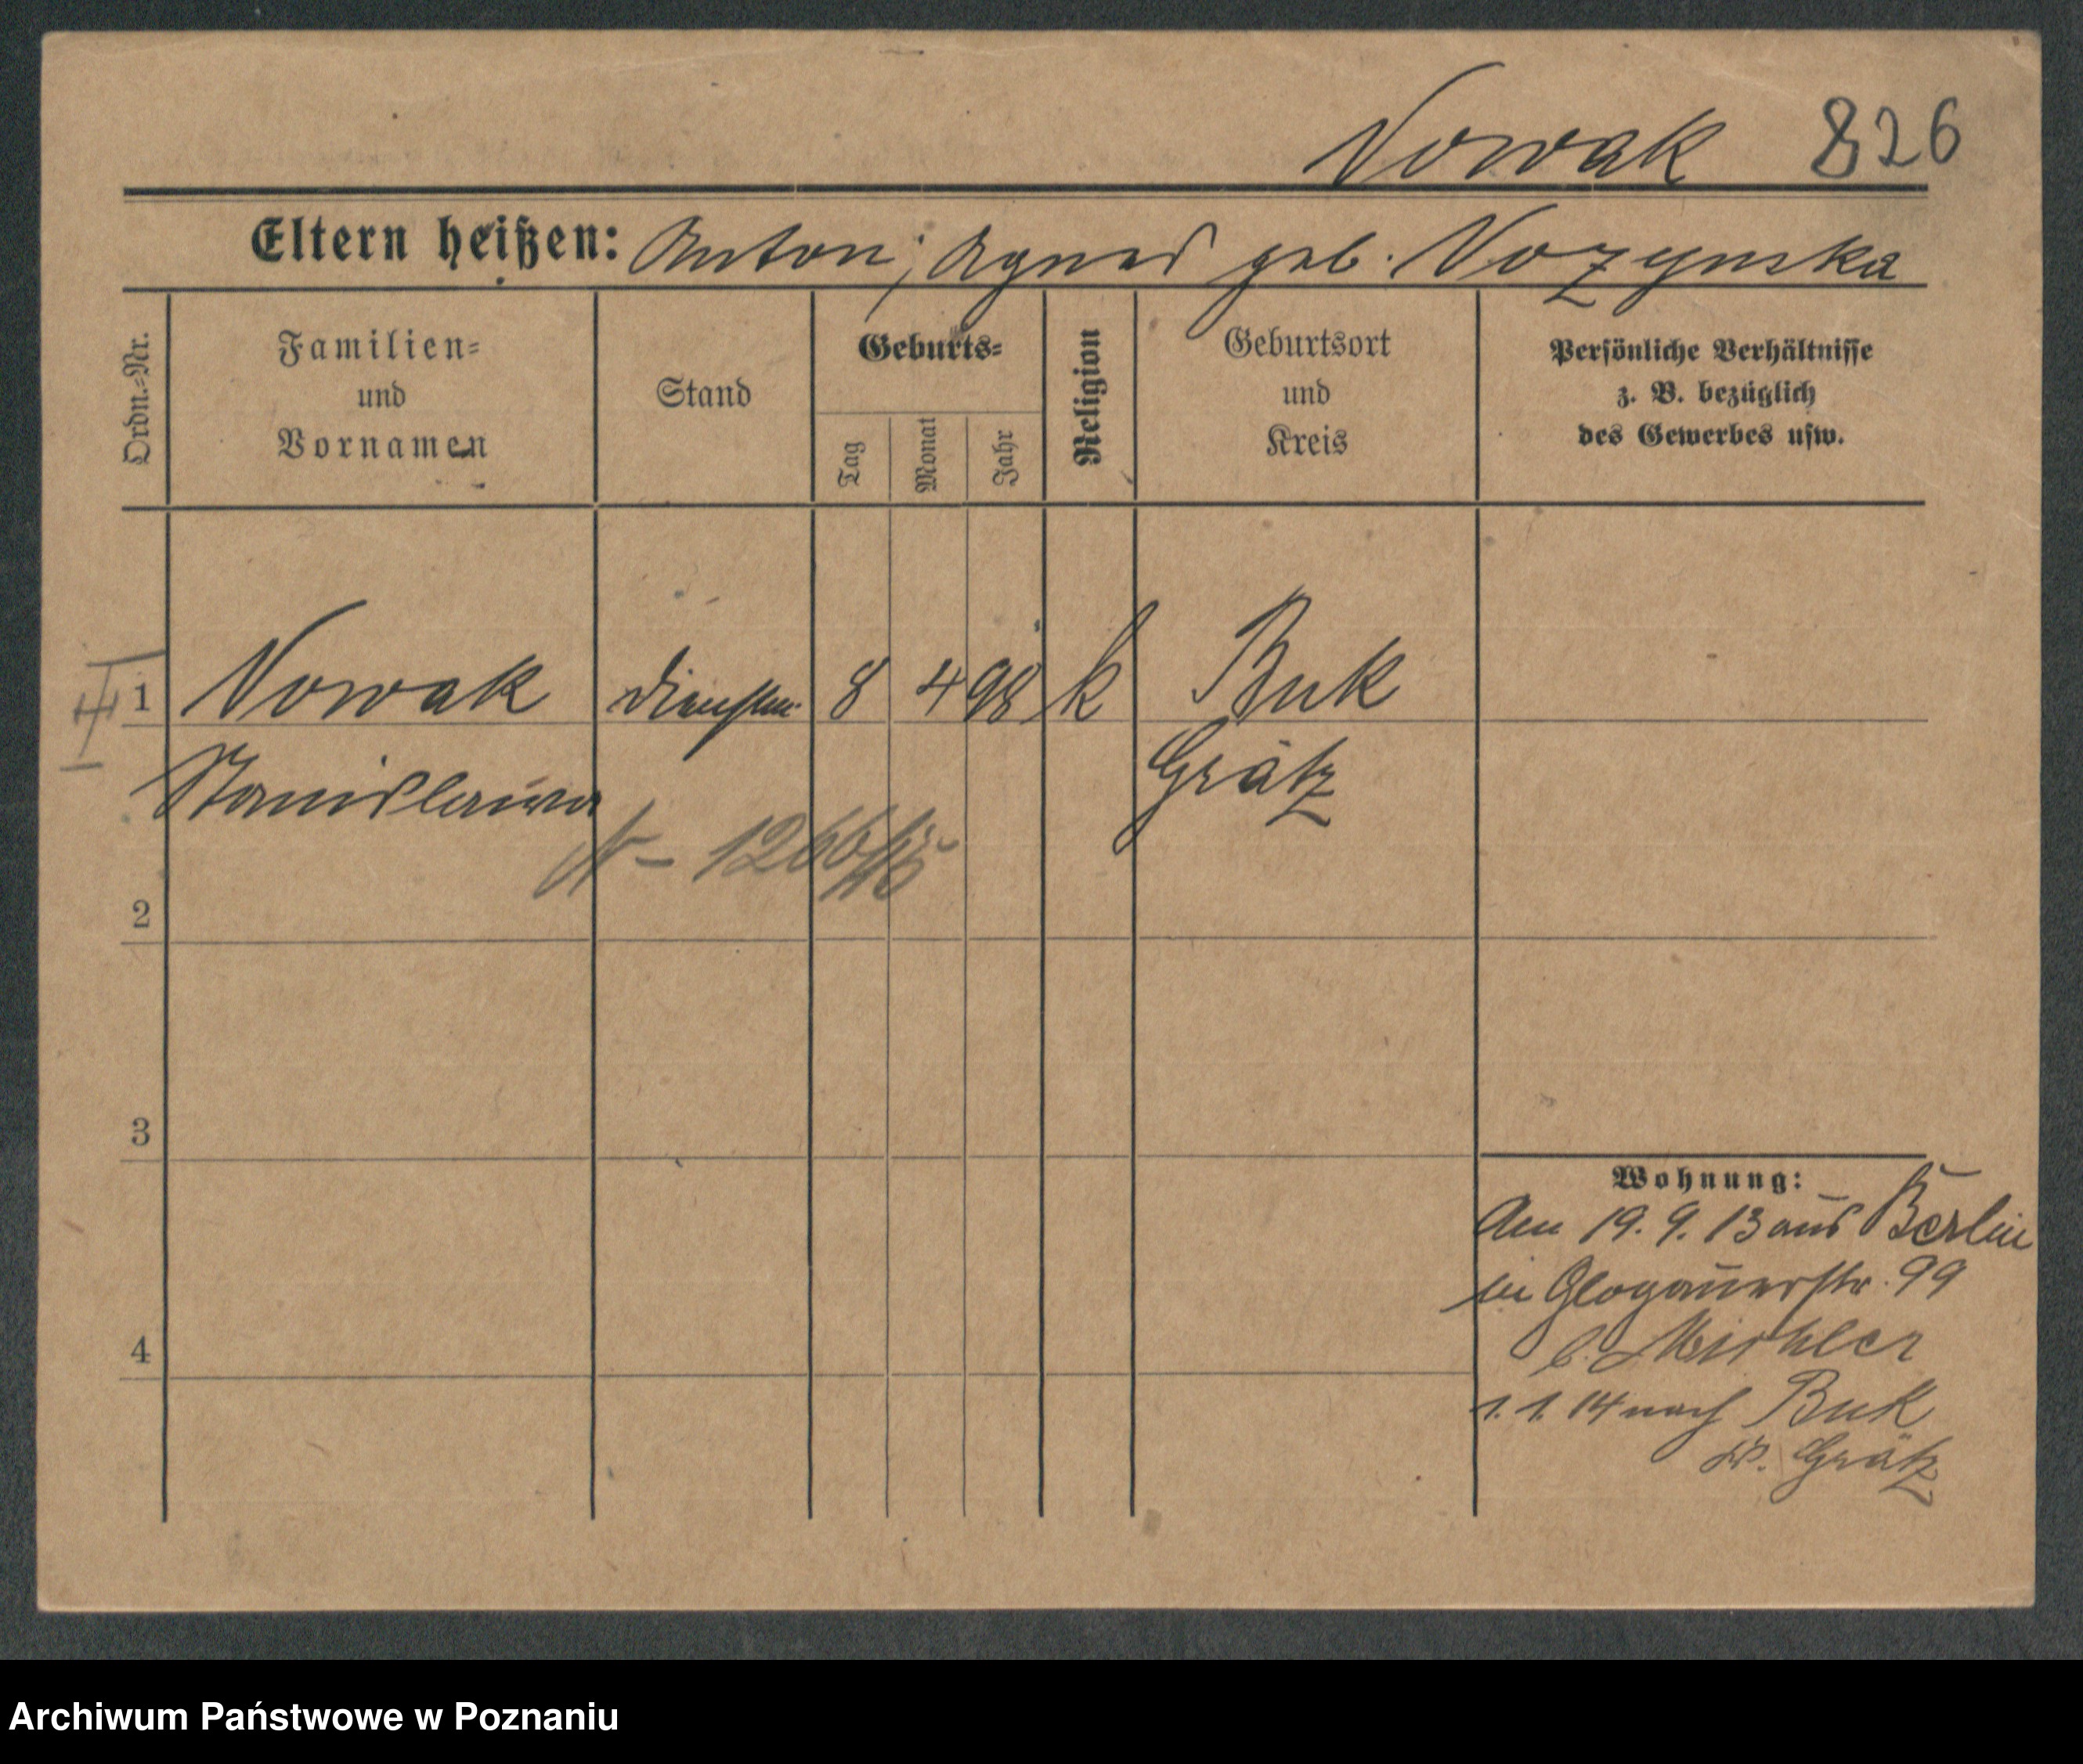 Nowak 826
Eltern heißen: Anton, Agnes geb. Nozynska
Ordn.-Nr.
Familien-
und
Vornamen
Stand
Geburts-
Tag
Monat
Jahr
Religion
Geburtsort
und
Kreis
Persönliche Verhältnisse
z. B. bezüglich
des Gewerbes usw.
1 Nowak 8 4 98 k Buk
Stanislawa Grätz
2
3
4
Wohnung:
Am 19. 9. 13 aus Berlin
in Glogauerstr. 99
b.
1. 1. 14 nach Buk
Grätz
Archiwum Państwowe w Poznaniu